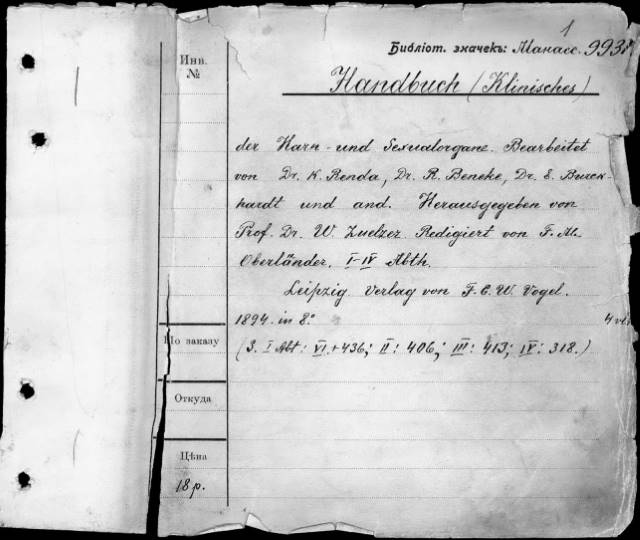 1
Библіот. значекъ: Манасс. 993
Инв.
№
Handbuch (Klinisches)
der Harn- und Sexualorgane. Bearbeitet
von Dr. K. Benda, Dr. R. Beneke, Dr. E. Burck-
hardt und and. Herausgegeben von
Prof. Dr. W. Zuelzer. Redigiert von F. M.
Oberländer. I-IV Abth.
Leipzig. Verlag von F. C. W. Vogel.
1894. in 8° 4 vol.
По заказу
(S. I Abt: VI.+436; II: 406; III: 413; IV: 318.)
Откуда
Цѣна
18 р.